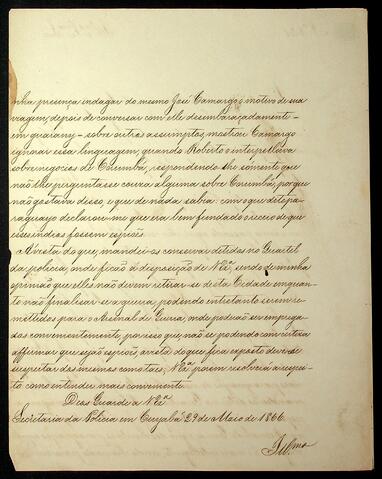 nha presença indagar do mesmo José Camargo, o motivo de sua
viagem, depois de conversar com elle desembaraçadamente
em guarany, sobre outros assumptos, mostrou Camargo
ignorar essa lenguagem, quando Roberto o interpellava
sobre negocios de Corumbá, respondendo-lhe somente que
não lhe perguntasse cousa alguma sobre Corumbá, porque
não gostava disso, e que de nada sabia: com o que dito pa-
raguayo declarou-me que era bem fundado o receio de que
esses indios fossem espiões.
Á vista do que, mandei-os conservar detidos no Quartel
da policia, onde ficão á disposição de V.Exª, sendo de minha
opinião que elles não devem retirar-se desta Cidade enquan-
to não finalisar-se a guerra, podendo entretanto serem re-
mettidos para o Arsenal de Guerra, onde poderão ser emprega-
dos convenientemente, por isso que, não se podendo com certeza
affirmar que sejão espiões, á vista do que fica exposto deve-se
suspeitar dos mesmos como taes; V.Exª, porem resolverá a respei-
to como entender mais conveniente.
Deos Guarde a V.Exª
Secretaria da Policia em Cuyabá 29 de Maio de 1866.
Ill.mo